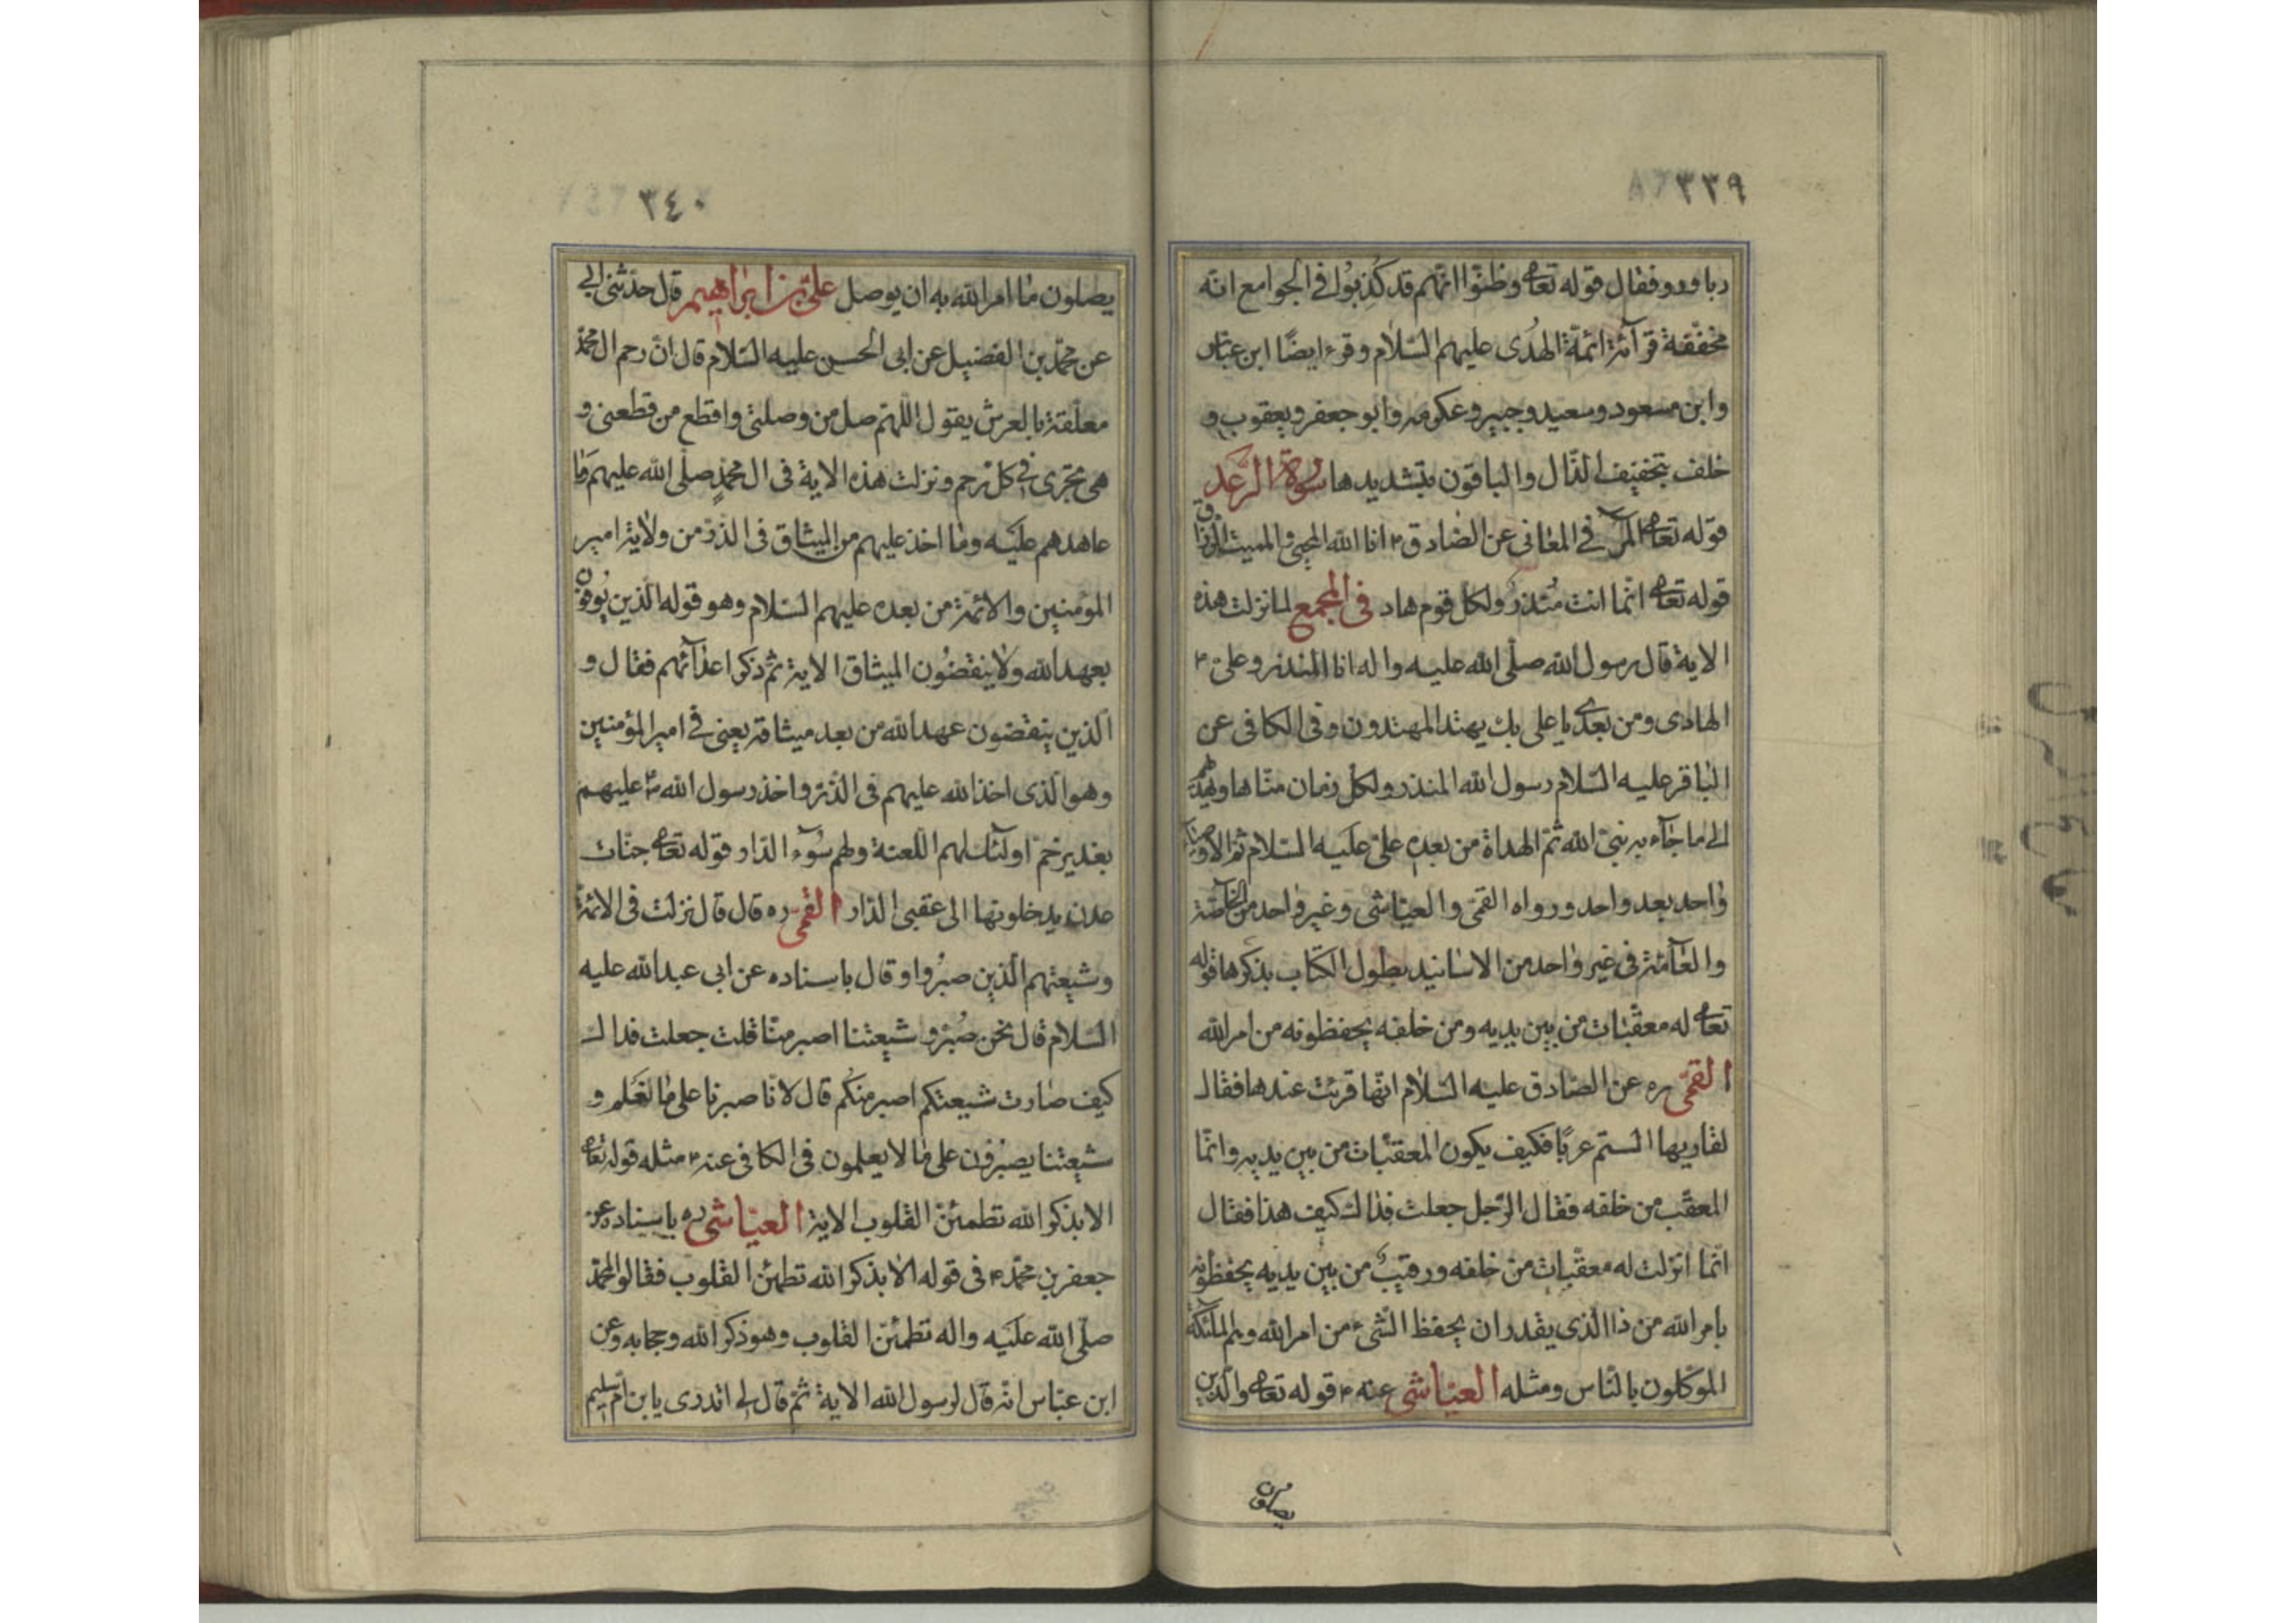 ٣٣٩
فقال قوله تعا وظنّوا انّهم قد كُذِبُوا في الجوامع انّه
مخفّفة قرآئة ائمّة الهُدى عليهم السّلام وقرء ايضًا ابن عبّاس
وابن مسعود وسعيد وجبير وعكرمه وابو جعفر ويعقوب و
خلف بتخفيف الذّال والباقون بتشديدها سورة الرّعد
قوله تعا المر في المعاني عن الصّادق ٤ انا الله المحيي والمميت الرّزاق
قوله تعا انّما انت مُنذر ولكل قوم هاد في المجمع لما نزلت هذه
الاية قال رسول الله صلّى الله عليه واله انا المنذر وعلىّ ٤
الهادى ومن بعدي يا على بك يهتد المهتدون وفى الكافى عن
الباقر عليه السّلام رسول الله المنذر ولكل زمان منّا هاد يهديهم
الى ما جآء به نبىّ الله ثمّ الهداة من بعده علىّ عليه السّلام ثمّ الاوصيآء
واحد بعد واحد ورواه القمّى والعيّاشى وغير واحد من الخاصّة
والعآمّة فى غير واحد من الاسانيد يطول الكتاب بذكرها قوله
تعا له معقّبات من بين يديه ومن خلفه يحفظونه من امر الله
القمّى ره عن الصّادق عليه السّلام انّها قرئت عنده فقال
لقاريها الستم عربًا فكيف يكون المعقّبات من بين يديه وانّما
المعقّب من خلفه فقال الرّجل جعلت فداك كيف هذا فقال
انّما انزلت له معقّبات من خلفه ورقيبٌ من بين يديه يحفظونه
بامر الله من ذا الّذى يقدر ان يحفظ الشّىء من امر الله وهم الملآئكة
الموكّلون بالنّاس ومثله العيّاشى عنه ٤ قوله تعا والّذين
يصلون
٣٤٠
يصلون ما امر الله به ان يوصل علىّ بن ابراهيم قال حدّثنى ابي
عن محمّد بن الفضيل عن ابى الحسن عليه السّلام قال انّ رحم ال محمّد
معلّقة بالعرش يقول اللّهمّ صل من وصلنى واقطع من قطعنى و
هى تجرى في كل رحم ونزلت هذه الاية فى ال محمّدٍ صلّى الله عليهم وما
عاهدهم عليه وما اخذ عليهم من الميثاق فى الذّر من ولاية امير
المؤمنين والائمّة من بعده عليهم السّلام وهو قوله الّذين يُوفون
بعهد الله ولا ينقضُون الميثاق الاية ثمّ ذكر اعدآئهم فقال و
الّذين ينقضون عهد الله من بعد ميثاقه يعنى في امير المؤمنين
وهو الّذى اخذ الله عليهم فى الذّر واخذ رسول الله ص عليهم
بغدير خمّ اولئك لهم اللعنة ولهم سُوء الدّار وقوله تعا جنّات
عدن يدخلونها الى عقبى الدّار القمى ره قال قال نزلت فى الائمّة
وشيعتهم الّذين صبرُوا وقال باسناده عن ابى عبد الله عليه
السّلام قال نحن صُبّر وشيعتنا اصبر منّا قلت جعلت فداك
كيف صارت شيعتكم اصبر منكم قال لانّا صبرنا على ما نعلم و
شيعتنا يصبرون على ما لا يعلمون فى الكافى عنه ٤ مثله قوله تعا
الا بذكر الله تطمئنّ القلوب الاية العيّاشى ره باسناده عن
جعفر بن محمّد ٤ فى قوله الا بذكر الله تطمئن القلوب فقال بمحمّد
صلّى الله عليه واله تطمئنّ القلوب وهو ذكر الله وحجابه وعن
ابن عبّاس انّه قال رسول الله الاية ثمّ قال لى اتدرى يا بن امّ سليم